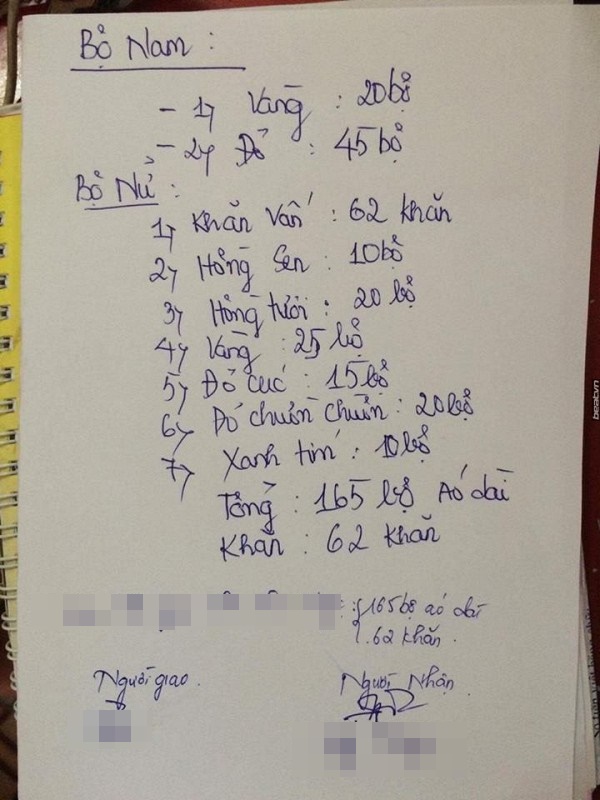 Bộ Nam :
- 1, Vàng : 20 bộ
- 2, Đỏ : 45 bộ
Bộ Nử :
1, Khăn Vấn : 62 khăn
2, Hồng Sen : 10 bộ
3, Hồng tươi : 20 bộ
4, Vàng : 25 bộ
5, Đỏ cúc : 15 bộ
6, Đỏ chuồn chuồn : 20 bộ
7, Xanh tím : 10 bộ
Tổng : 165 bộ Áo dài
Khăn : 62 khăn
: 165 bộ áo dài
62 khăn.
Người giao. Người Nhận.
beatvn